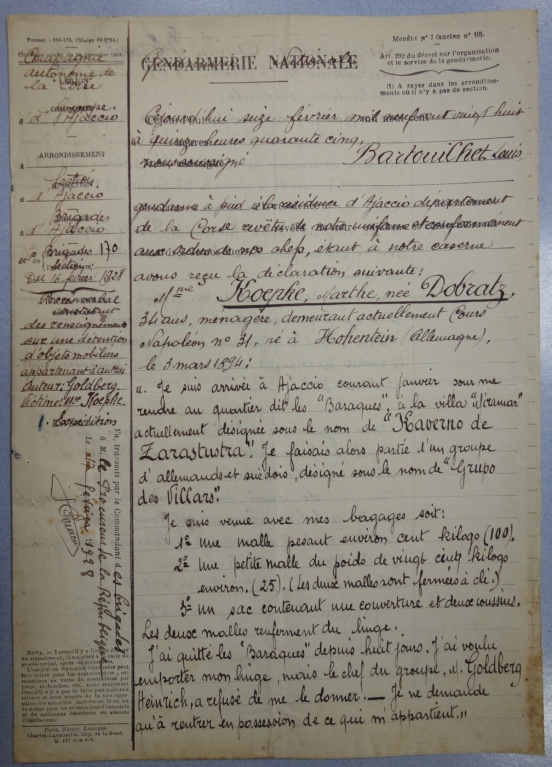 Format : 180-170. (Marge 50.0%.)
Compagnie
autonome de
LÉGION
la Corse
COMPAGNIE
d'Ajaccio
ARRONDISSEMENT
Section
d'Ajaccio
Brigades
d'Ajaccio
Brigades 170
Section
Du 16 février 1928
Procès-verbal
constatant
des renseignements
sur une détention
d'objets mobiliers
appartenant à autrui
Auteur: Goldberg
Victime: Mme Koepke.
1. Expédition
Vu, transmis par le Commandant
à M. le Procureur de la République
Le 17 février 1928
NOTA. — Lorsqu'il y a lieu
Paris, Nancy, Limoges,
Charles-Lavauzelle
MODÈLE N° 7 (ancien n° 10).
Art. 292 du décret sur l'organisation
et le service de la gendarmerie.
(1) A rayer dans les arrondisse-
ments où il n'y a pas de section.
GENDARMERIE NATIONALE
Cejourd'hui seize février mil neuf cent vingt huit
à quinze heures quarante cinq,
Nous soussigné Bartouilhet, Louis,
gendarme à pied à la résidence d'Ajaccio département
de la Corse revêtu de notre uniforme et conformément
aux ordres de nos chefs, étant à notre caserne
avons reçu la déclaration suivante:
Mme Koepke, Marthe, née Dobratz,
34 ans, ménagère, demeurant actuellement Cours
Napoléon n° 31, né à Hohenstein (Allemagne),
le 3 mars 1894:
"Je suis arrivée à Ajaccio courant janvier pour me
rendre au quartier dit les "Baraques", à la villa "Miramar"
actuellement désignée sous le nom de "Kaverno de
Zarastustra". Je faisais alors partie d'un groupe
d'allemands et suédois, désigné sous le nom de "Grupo
des Villars".
Je suis venue avec mes bagages soit:
1° une malle pesant environ cent kilogs (100).
2° une petite malle du poids de vingt cinq kilogs
environ. (25). (Les deux malles sont fermées à clé.)
3° un sac contenant une couverture et deux coussins.
Les deux malles renferment du linge.
J'ai quitté les "Baraques" depuis huit jours. J'ai voulu
emporter mon linge, mais le chef du groupe, M. Goldberg
Heinrich, a refusé de me le donner. — Je ne demande
qu'à rentrer en possession de ce qui m'appartient."